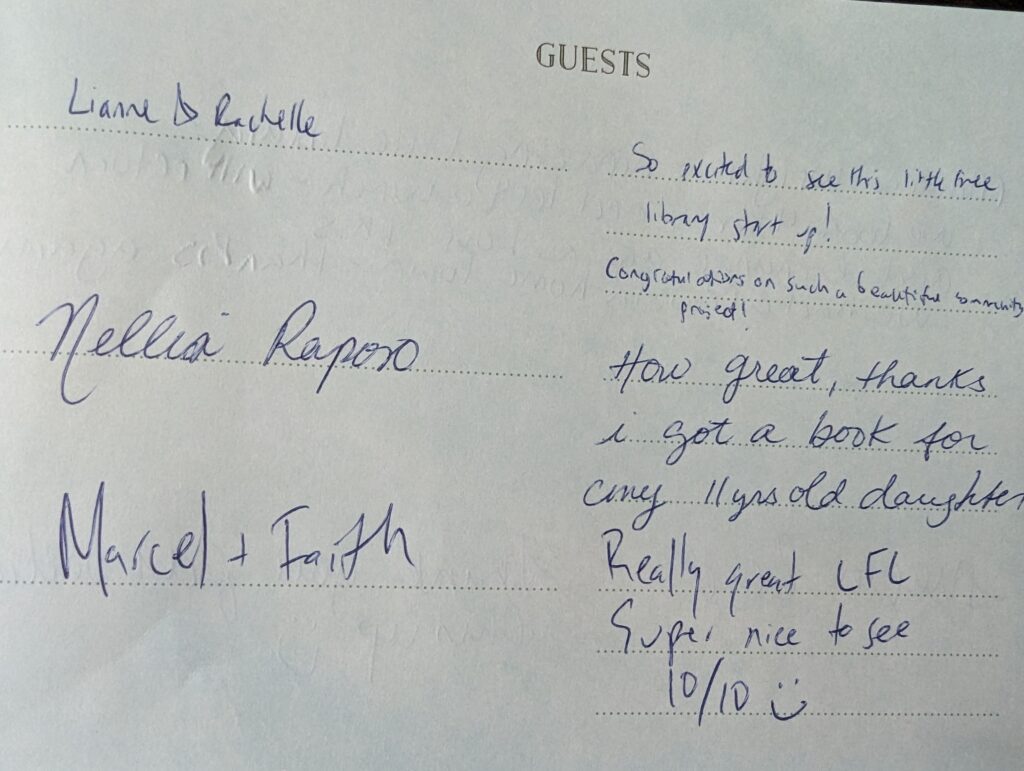 GUESTS
Lianne & Rachelle
So excited to see this little free
library start up!
Congratulations on such a beautiful community
project!
Nellia Raposo
How great, thanks
i got a book for
my 11yrs old daughter
Marcel + Faith
Really great LFL
Super nice to see
10/10 :)